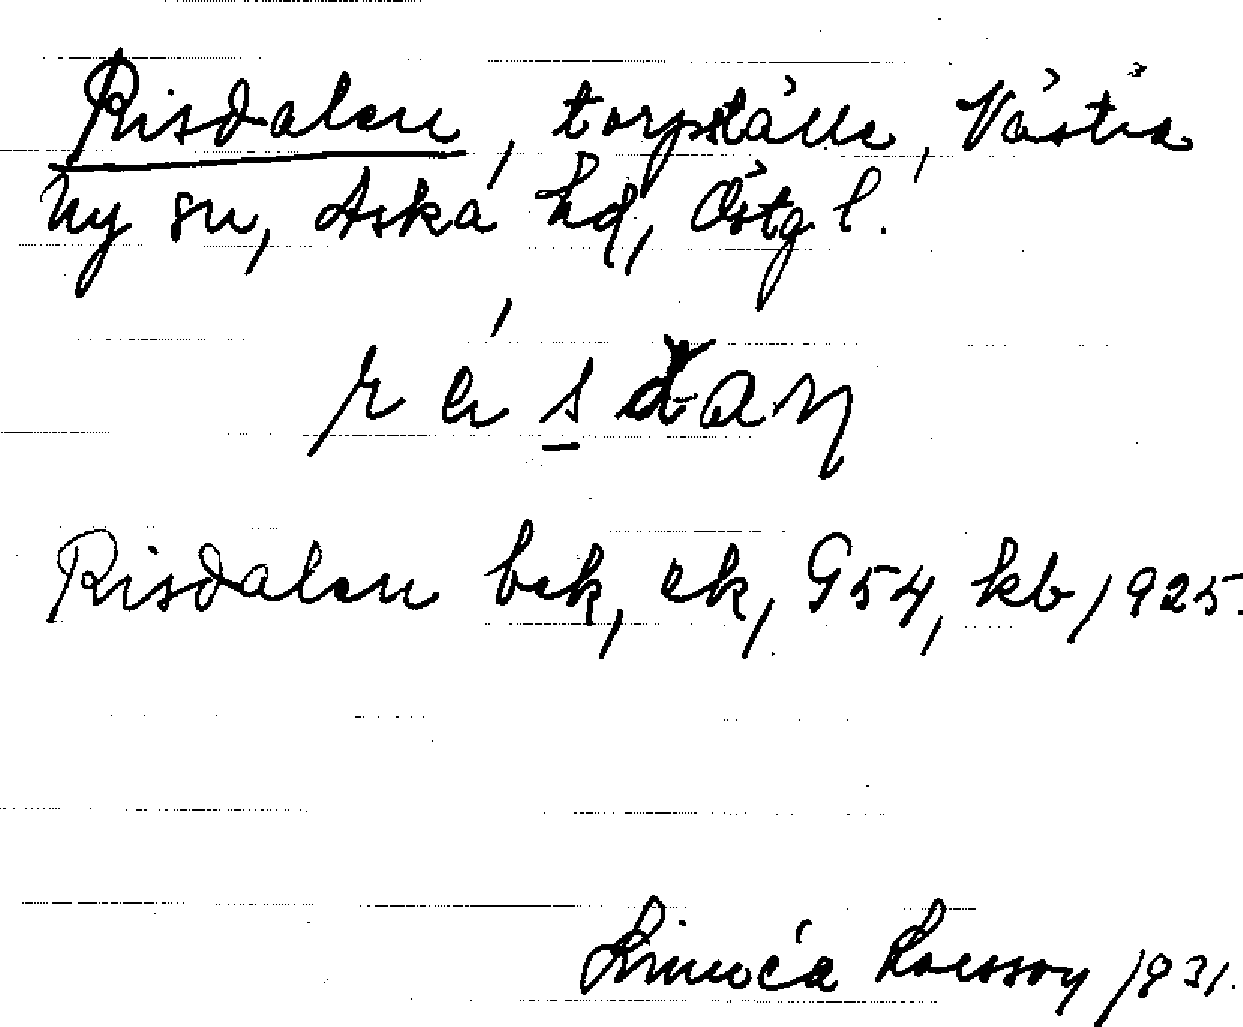 Risdalen, torpställe, Västra
Ny sn, Aska hd, Östg l.
Risdalen bek, ek, G54, kb 1925.
Linnéa Larsson 1931.